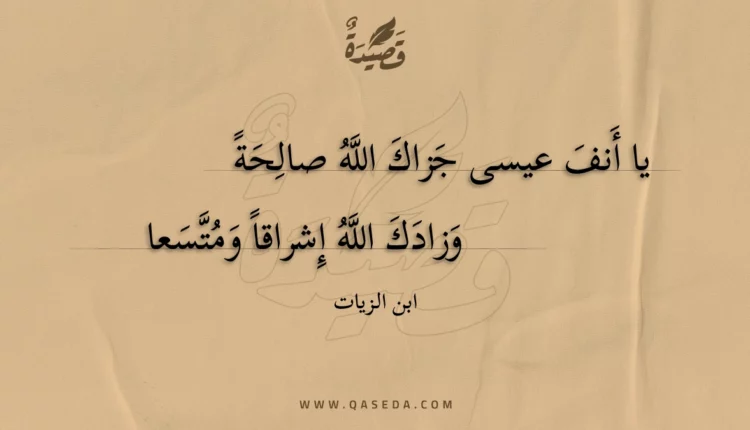 قَصِيْدَةٌ
يا أَنفَ عيسى جَزاكَ اللَّهُ صالِحَةً
وَزادَكَ اللَّهُ إِشراقاً وَمُتَّسَعا
ابن الزيات
WWW.QASEDA.COM